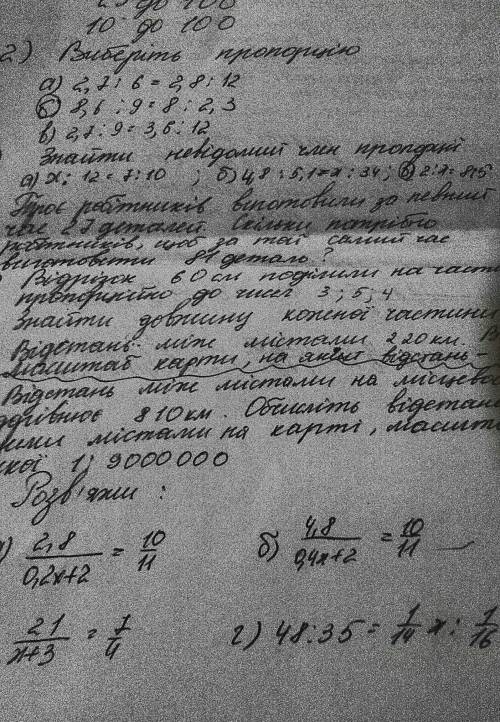 25 до 100
10 до 100
2) Виберіть пропорцію
а) 2,7 : 6 = 2,8 : 12
б) 8,6 : 9 = 8 : 2,3
в) 2,7 : 9 = 3,6 : 12
Знайти невідомий член
а) х : 12 = 7 : 10 ; б) 4,8 : 5,1 = х : 34 ;
Троє робітників виготовили за певний
час 27 деталей. Скільки потрібно
робітників, щоб за той самий час
виготовити 81 деталь?
Відрізок 60 см поділили на части
пропорційно до чисел 3 ; 5 ; 4
Знайти довжину кожної частини
Відстань між містами 220 км. В
масштаб карти, на якій відстань -
Відстань між містами на місцево
дорівнює 810 км. Обчисліть відстань
ними містами на карті, масшта
якої 1 : 9000000
Розв'яжи :
а) 2,8 / 0,2х+2 = 10 / 11
б) 4,8 / 0,4х+2 = 10 / 11
21 / х+3 = 7 / 4
г) 48 : 35 = 1/14 х : 1/16